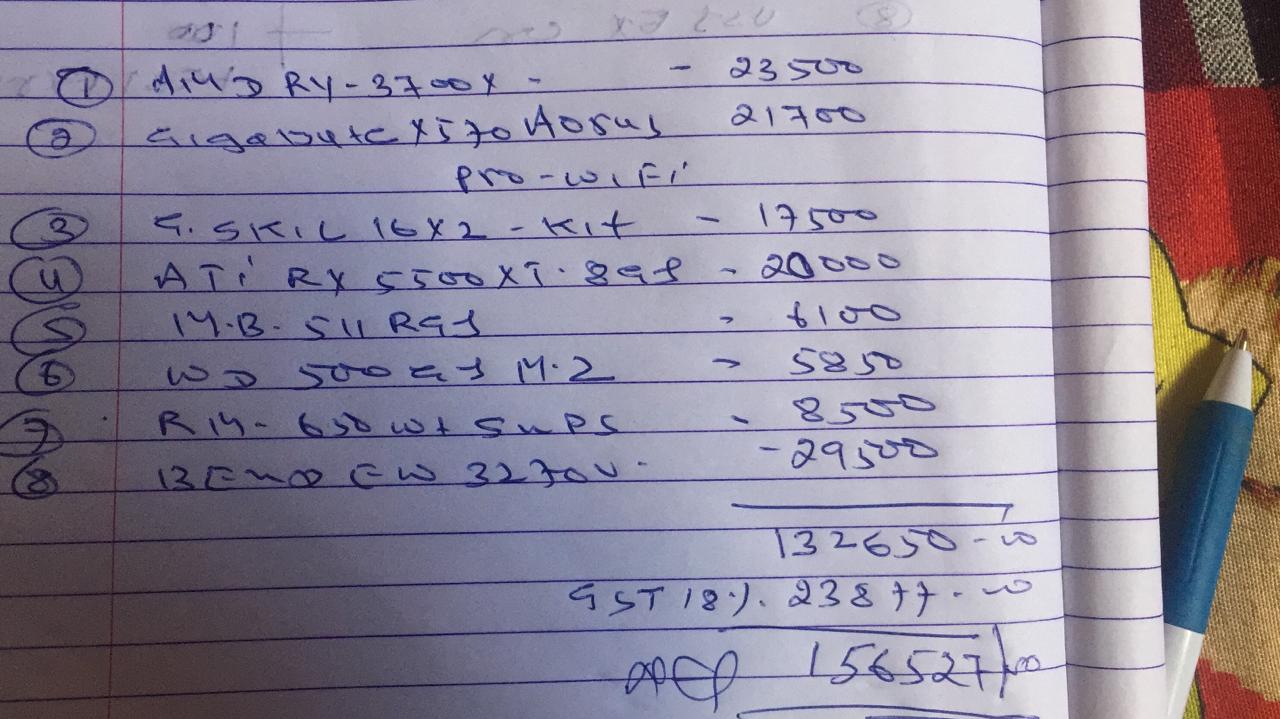 ① AMD RY-3700X - - 23500
② Gigabyte X570 Aorus 21700
Pro-WiFi
③ G.SKIL 16X2 - Kit - 17500
④ ATi RX 5500XT. 8GB - 20000
⑤ M.B. 511 RGB - 6100
⑥ WD 500GB M.2 - 5850
⑦ RM- 650wt SMPS - 8500
⑧ BENQ EW 3270U. - 29500
132650-00
GST 18%. 23877.00
156527/00